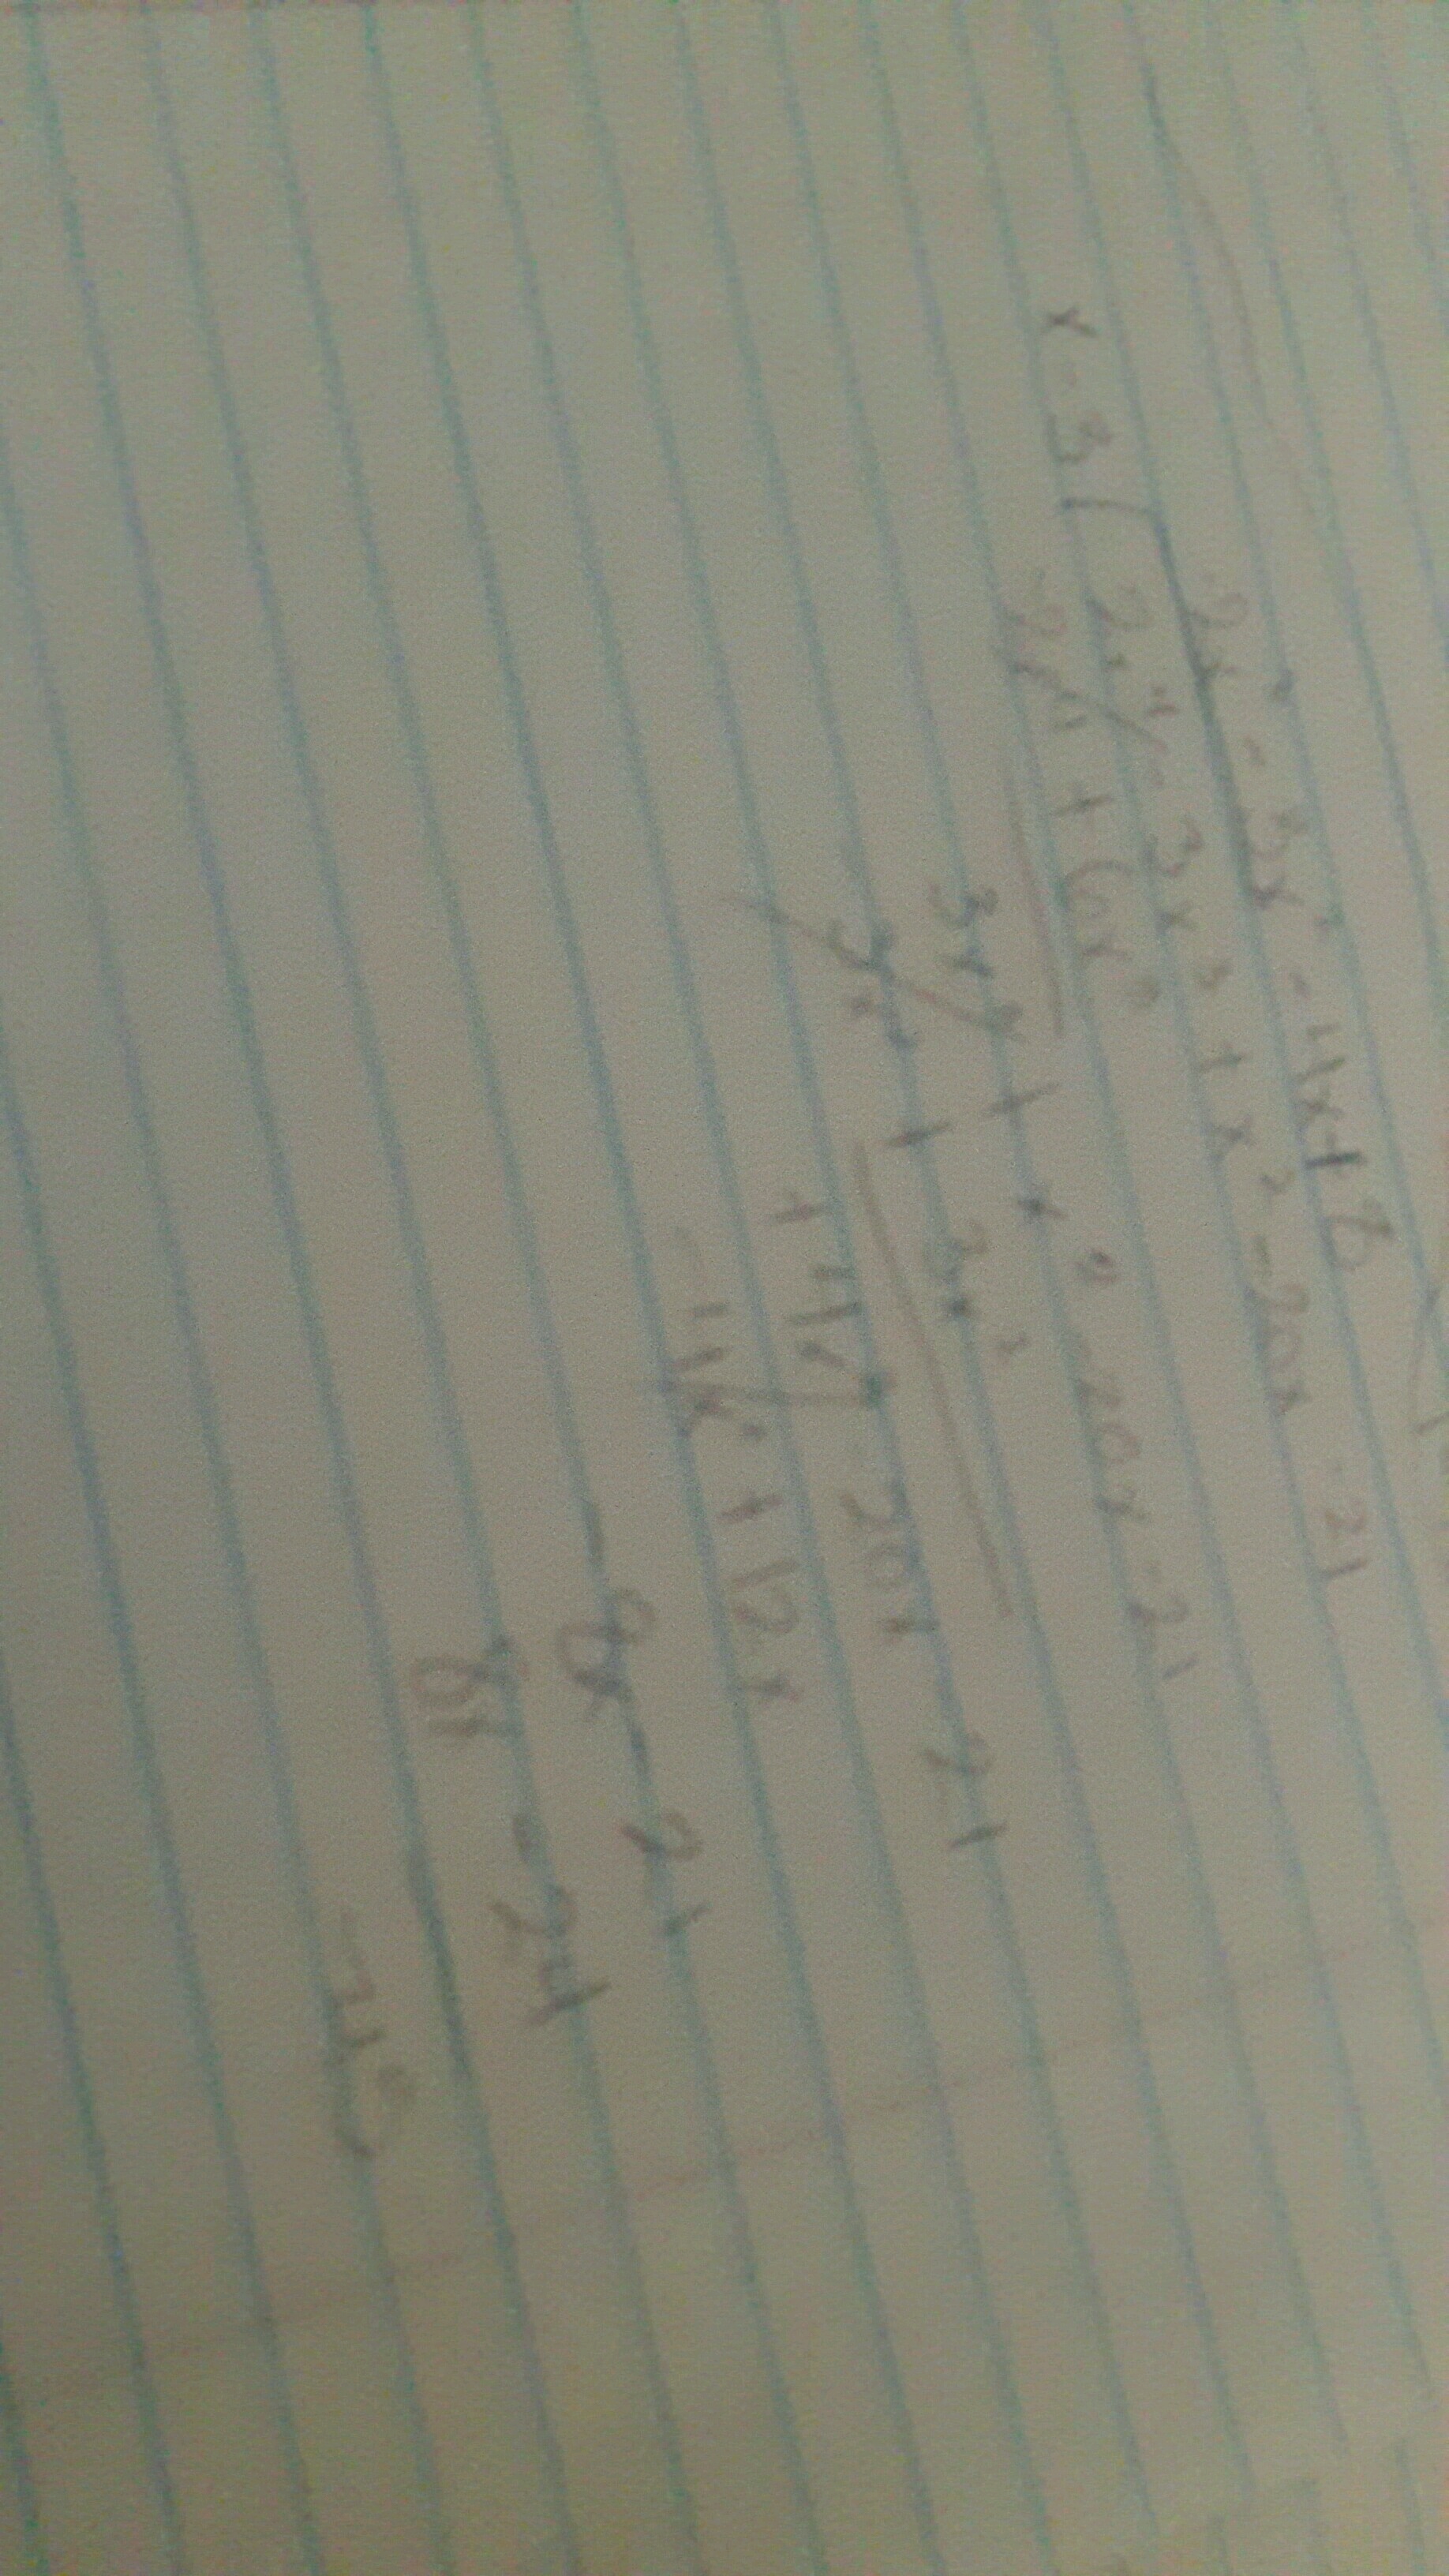 2x³ - 3x² - 4x + 8
x - 3 | 2x⁴ - 3x³ + x² - 20x - 21
2x⁴ + 6x³
3x³ + x² - 20x - 21
+ 3x²
+ 4x² 20x 21
- 4x² + 12x
- 8x - 21
8x - 24